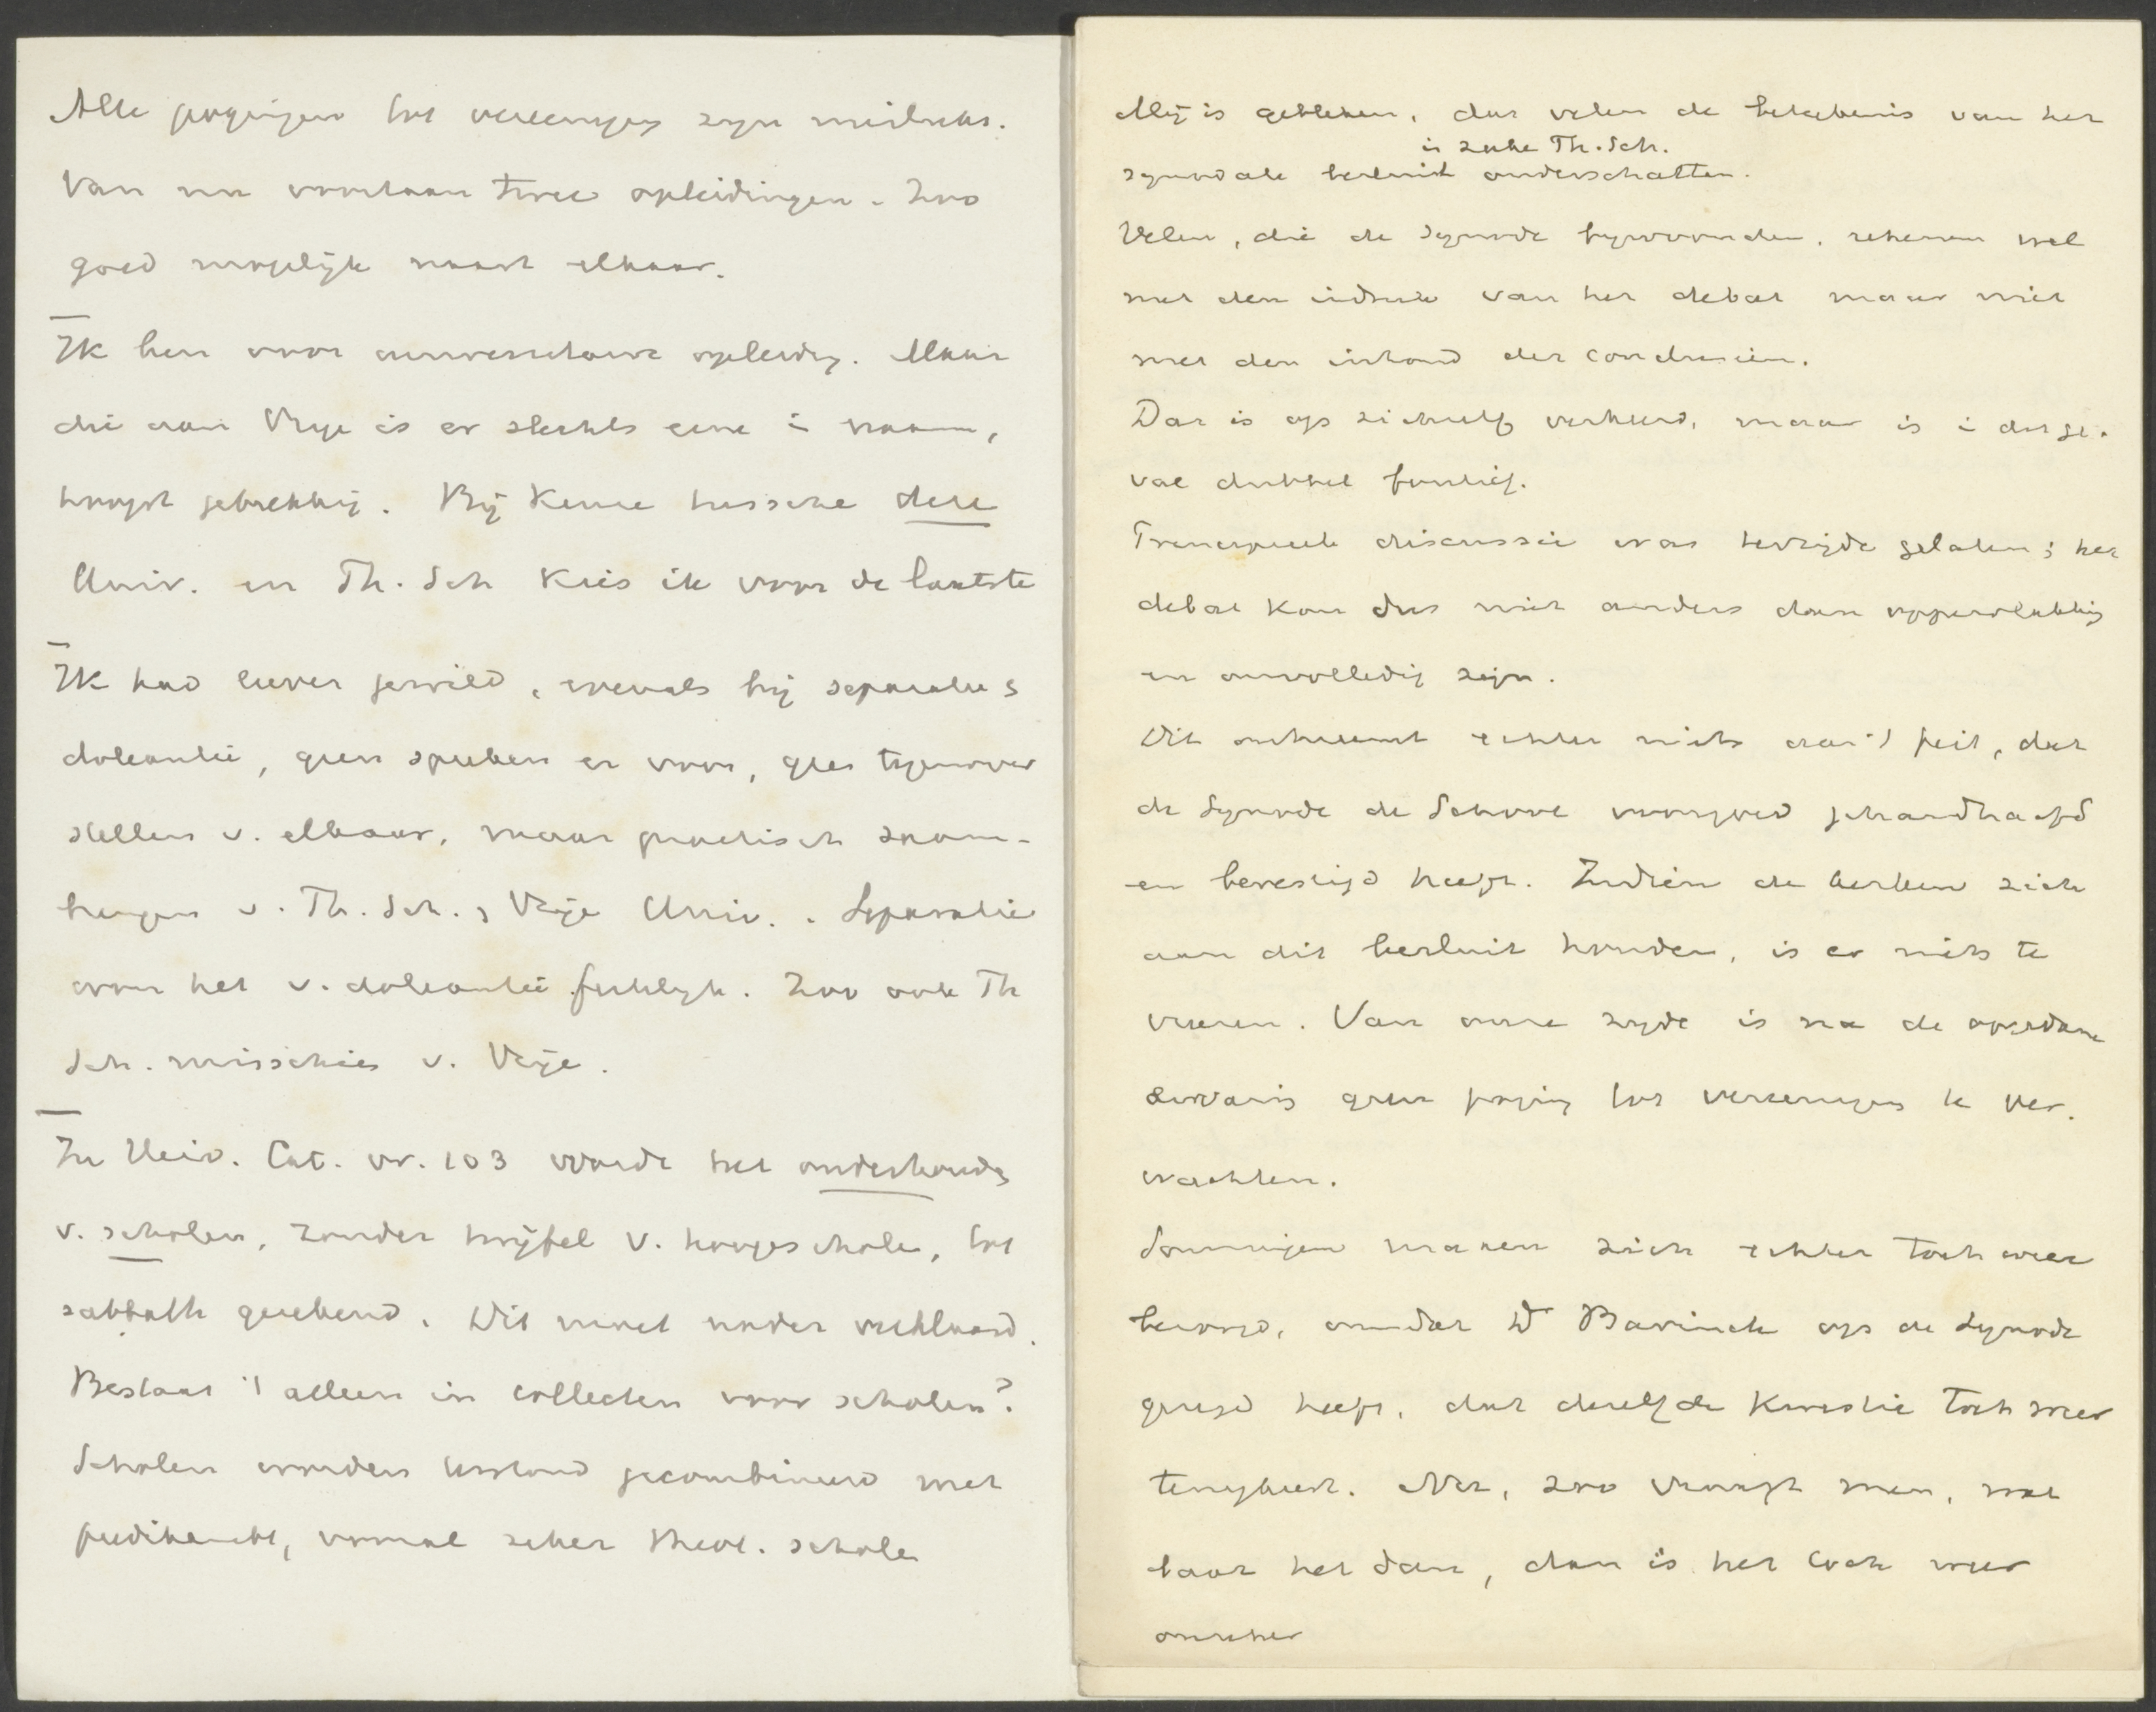 Alle pogingen tot vereeniging zijn mislukt.
Van nu voortaan twee opleidingen. Zoo
goed mogelijk naast elkaar.
Ik ben voor universitaire opleiding. Maar
die aan Vrije is er slechts eene i naam,
hoogst gebrekkig. Bij keuze tussche deze
Univ. en Th. Sch kies ik voor de laatste
Ik had liever gewild, evenals bij separatie &
doleantie, geen spreken er voor, geen tegenover
stellen v. elkaar, maar practisch saam-
hangen v. Th. Sch. & Vrije Univ. Separatie
voor het v. doleantie feitelijk. Zoo ook Th
Sch. misschien v. Vrije.
In Heid. Cat. vr. 103 wordt het onderhoudg
v. scholen, zonder twijfel v. hoogescholen, tot
sabbath gerekend. Dit moet nader verklaard.
Bestaat 't alleen in collecten voor scholen?
Scholen worden bestand gecombineerd met
predikambt, vooral zeker theol. scholen
Mij is gebleken, dat velen de beteekenis van het
in zake Th. Sch.
synodale besluit onderschatten.
Velen, die de Synode bijwoonden, rekenen wel
met den indruk van het debat maar niet
met den inhoud der conclusiën.
Dat is op zichzelf verkeerd, maar is i dit ge-
val dubbel foutief.
Principieele discussie was terzijde gelaten; het
debat kon dus niet anders dan oppervlakkig
en onvolledig zijn.
Dit ontneemt echter niets aan 't feit, dat
de Synode de School voorgoed gehandhaafd
en bevestigd heeft. Indien de kerken zich
aan dit besluit houden, is er niets te
vreezen. Van onze zijde is na de opgedane
ervaring geen poging tot vereeniging te ver-
wachten.
Sommigen maken zich echter toch weer
bezorgd, omdat Dr Bavinck op de Synode
gezegd heeft, dat dezelfde kwestie toch weer
terugkeert. Net, zoo vraagt men, wat
baat het dan, dan is het toch weer
onzeker